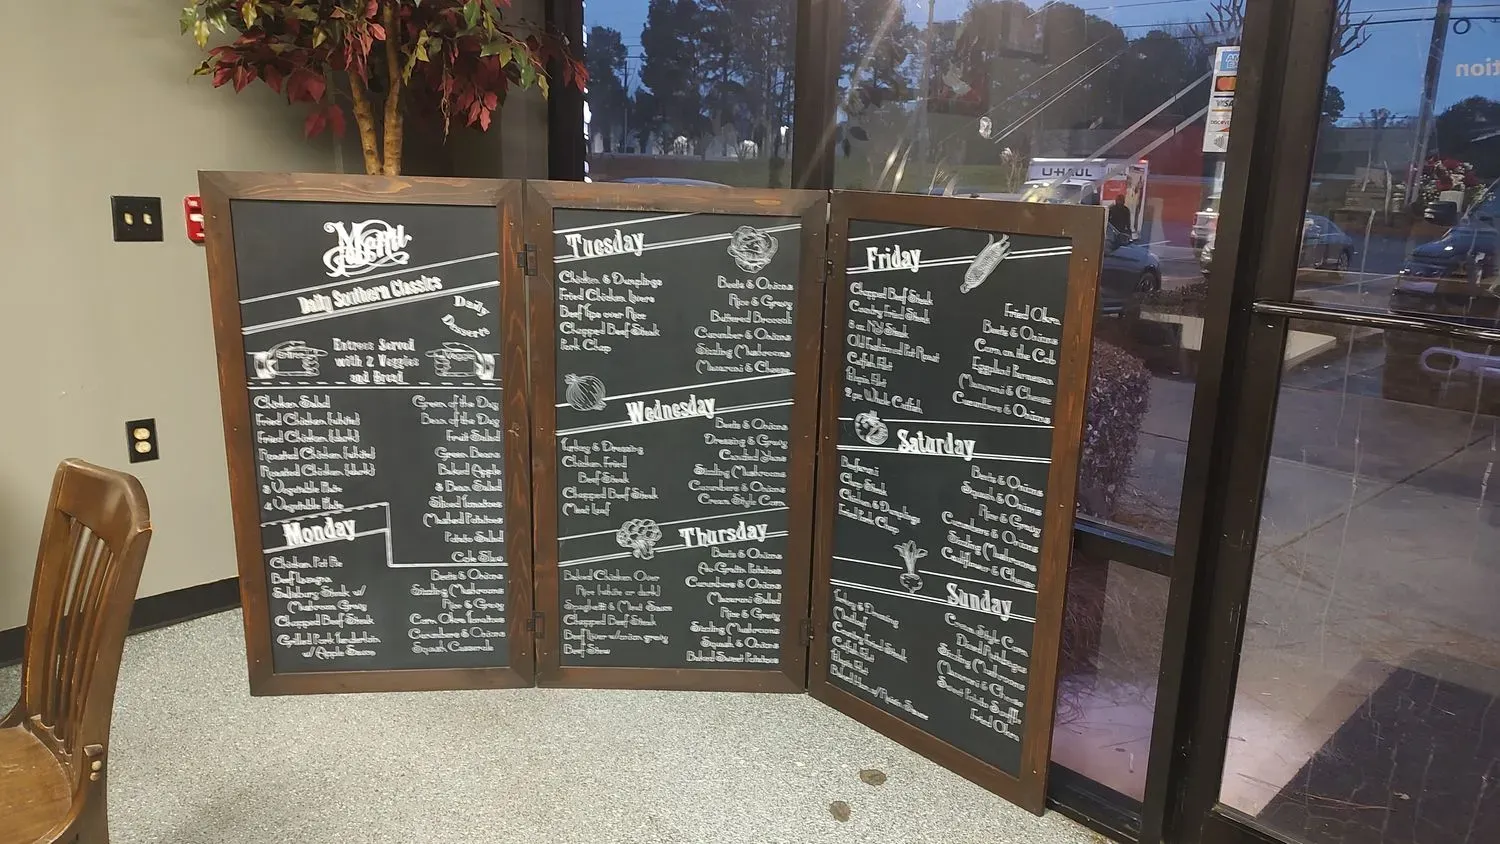 Menu
Daily Southern Classics
Daily
Desserts
Entrees Served
with 2 Veggies
and Bread
Entrees
Veggies
Chicken Salad
Fried Chicken (white)
Fried Chicken (dark)
Roasted Chicken (white)
Roasted Chicken (dark)
3 Vegetable Plate
4 Vegetable Plate
Green of the Day
Bean of the Day
Fruit Salad
Green Beans
Baked Apple
3 Bean Salad
Sliced Tomatoes
Mashed Potatoes
Potato Salad
Cole Slaw
Monday
Chicken Pot Pie
Beef Lasagna
Salisbury Steak w/
Mushroom Gravy
Chopped Beef Steak
Grilled Pork Tenderloin
w/ Apple Sauce
Beets & Onions
Sizzling Mushrooms
Rice & Gravy
Corn, Okra, Tomatoes
Cucumbers & Onions
Squash Casserole
Tuesday
Chicken & Dumplings
Fried Chicken Livers
Beef Tips over Rice
Chopped Beef Steak
Pork Chop
Beets & Onions
Rice & Gravy
Buttered Broccoli
Cucumber & Onions
Sizzling Mushrooms
Macaroni & Cheese
Wednesday
Turkey & Dressing
Chicken Fried
Beef Steak
Chopped Beef Steak
Meat Loaf
Beets & Onions
Dressing & Gravy
Candied Yams
Sizzling Mushrooms
Cucumbers & Onions
Cream Style Corn
Thursday
Baked Chicken Over
Rice (white or dark)
Spaghetti & Meat Sauce
Chopped Beef Steak
Beef Liver w/onion gravy
Beef Stew
Beets & Onions
Au Gratin Potatoes
Cucumbers & Onions
Macaroni Salad
Rice & Gravy
Sizzling Mushrooms
Squash & Onions
Baked Sweet Potatoes
Friday
Chopped Beef Steak
Country Fried Steak
8 oz. NY Steak
Old Fashioned Pot Roast
Catfish Filet
Tilapia Filet
2 pc. Whole Catfish
Fried Okra
Beets & Onions
Corn on the Cob
Eggplant Parmesan
Macaroni & Cheese
Cucumbers & Onions
Saturday
Chop Steak
Chicken & Dumplings
Fried Pork Chop
Beets & Onions
Squash & Onions
Rice & Gravy
Cucumbers & Onions
Sizzling Mushrooms
Cauliflower & Cheese
Sunday
Turkey & Dressing
Meatloaf
Country Fried Steak
Catfish Filet
Tilapia Filet
Baked Ham w/ Raisin Sauce
Cream Style Corn
Diced Rutabagas
Sizzling Mushrooms
Macaroni & Cheese
Sweet Potato Souffle
Fried Okra
U-HAUL
VISA
DISCOVER